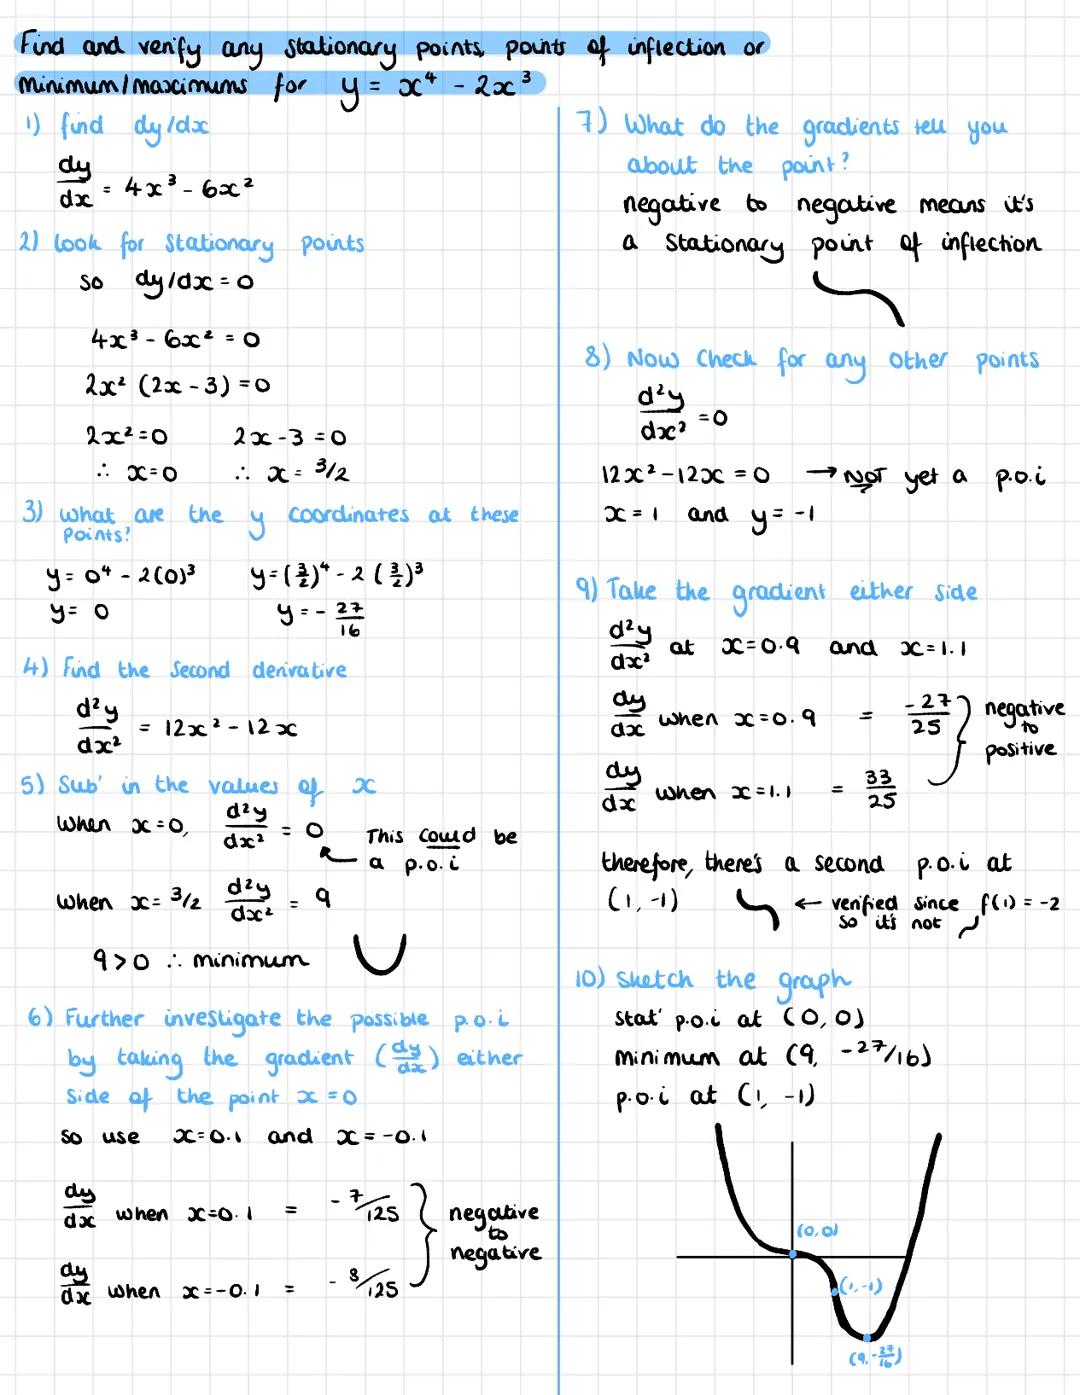 Find and verify any stationary points, points of inflection or
minimum/maximums for y = x⁴ - 2x³
1) find dy/dx
dy/dx = 4x³ - 6x²
2) look for stationary points
so dy/dx = 0
4x³ - 6x² = 0
2x² (2x - 3) = 0
2x² = 0 2x - 3 = 0
∴ x = 0 ∴ x = 3/2
3) what are the y coordinates at these
points?
y = 0⁴ - 2(0)³ y = (3/2)⁴ - 2(3/2)³
y = 0 y = - 27/16
4) find the second derivative
d²y/dx² = 12x² - 12x
5) Sub' in the values of x
when x=0, d²y/dx² = 0 This could be
a p.o.i
when x = 3/2 d²y/dx² = 9
9 > 0 ∴ minimum
6) Further investigate the possible p.o.i
by taking the gradient (dy/dx) either
side of the point x = 0
so use x = 0.1 and x = -0.1
dy/dx when x=0.1 = - 7/125 negative
to
negative
dy/dx when x = -0.1 = - 8/125
7) What do the gradients tell you
about the point?
negative to negative means it's
a stationary point of inflection
8) Now check for any other points
d²y/dx² = 0
12x² - 12x = 0 → NOT yet a p.o.i
x = 1 and y = -1
9) Take the gradient either side
d²y/dx² at x = 0.9 and x = 1.1
dy/dx when x = 0.9 = -27/25 negative
to
positive
dy/dx when x = 1.1 = 33/25
therefore, there's a second p.o.i at
(1, -1) ← verified since f(1) = -2
so it's not
10) Sketch the graph
stat' p.o.i at (0,0)
minimum at (9, -27/16)
p.o.i at (1, -1)
(0,0)
(1,-1)
(9,-27/16)